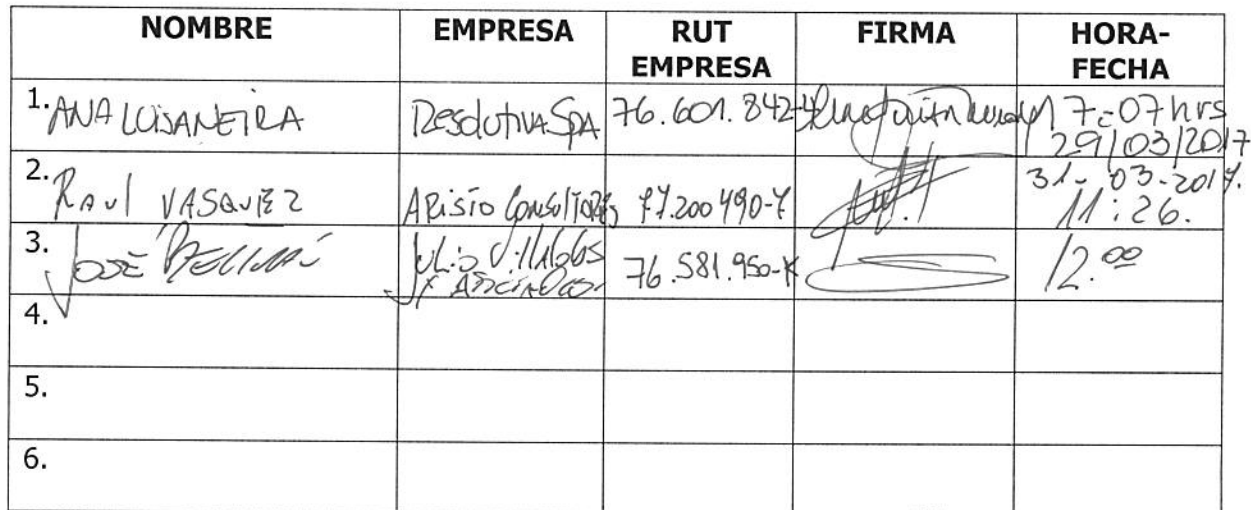 NOMBRE EMPRESA RUT EMPRESA FIRMA HORA-FECHA
1. ANA LUISA NEIRA Resolutiva SpA 76.601.842-4 17:07 hrs
29/03/2017
2. Raul VASQUEZ ARISTO Consultores 77.200490-7 31-03-2017.
11:26.
3. JOSÉ Julio Villalobos
y Asociados 76.581.950-K 12.00
4.
5.
6.